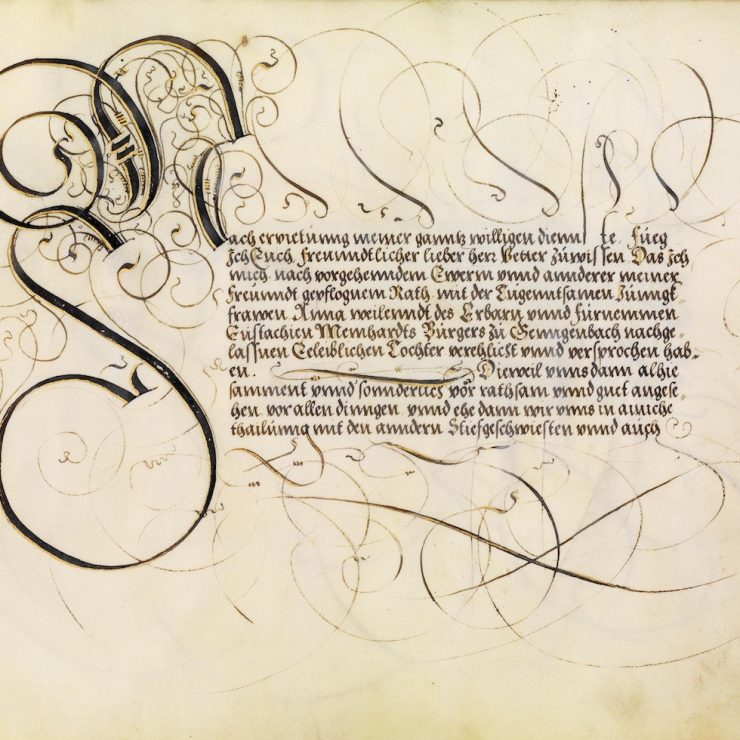 Nach erbietunng meiner ganntz willigen dienn ste. Fueg
Ich Euch, freunndtlicher lieber herr Vetter zuwissen Das Ich
mich nach vorgehenndem Ewerm vnnd annderer meiner
Freunndt gepflognem Rath mit der Tugenntsamen Junngk„
frawen Anna weilenndt des Erbarn vnnd Fürnemmen
Eustachien Meinhardts Burgers zu Genngenbach nachge„
lassnen Eeleiblichen Tochter verehlicht vnnd versprochen hab„
en. Dieweil vnns dann alhie
samment vnnd sonnderlich vor rathsam vnnd guet angese„
hen, vor allen dinngen, vnnd ehe dann wir vnns in ainiche
thailünng mit den anndern Stiefgeschwiesten vnnd auch